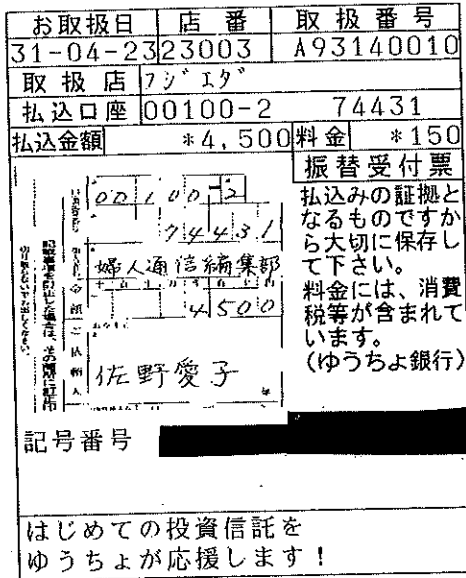 お取扱日 店番 取扱番号
31-04-23 23003 A93140010
取扱店 フジエダ
払込口座 00100-2 74431
払込金額 *4,500 料金 *150
振替受付票
払込みの証拠と
なるものですか
ら大切に保存し
て下さい。
料金には、消費
税等が含まれて
います。
(ゆうちょ銀行)
00100-2
74431
婦人通信編集部
4500
ご依頼人
佐野愛子
記載事項を訂正した場合は、その箇所に訂正印
切り離さないでお出しください。
記号番号
はじめての投資信託を
ゆうちょが応援します!